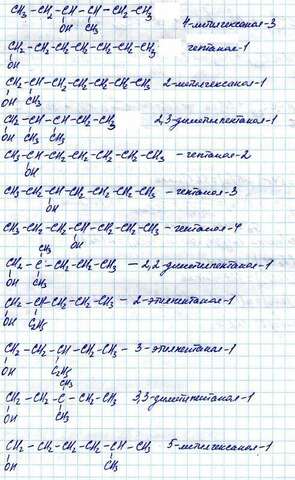 CH3 - CH2 - CH - CH - CH2 - CH3
OH CH3
4-метилгексанол-3
CH2 - CH2 - CH2 - CH2 - CH2 - CH2 - CH3 гептанол-1
OH
CH2 - CH - CH2 - CH2 - CH2 - CH3 2-метилгексанол-1
OH CH3
CH2 - CH - CH - CH2 - CH3 2,3-диметилпентанол-1
OH CH3 CH3
CH3 - CH - CH2 - CH2 - CH2 - CH2 - CH3 - гептанол-2
OH
CH3 - CH2 - CH - CH2 - CH2 - CH2 - CH3 - гептанол-3
OH
CH3 - CH2 - CH2 - CH - CH2 - CH2 - CH3 - гептанол-4
CH3 OH
CH2 - C - CH2 - CH2 - CH3 - 2,2-диметилпентанол-1
OH CH3
CH2 - CH - CH2 - CH2 - CH3 - 2-этилпентанол-1
OH C2H5
CH2 - CH2 - CH - CH2 - CH3 - 3-этилпентанол-1
OH C2H5
CH3
CH2 - CH2 - C - CH2 - CH3 3,3-диметилпентанол-1
OH CH3
CH2 - CH2 - CH2 - CH2 - CH - CH3 5-метилгексанол-1
OH CH3